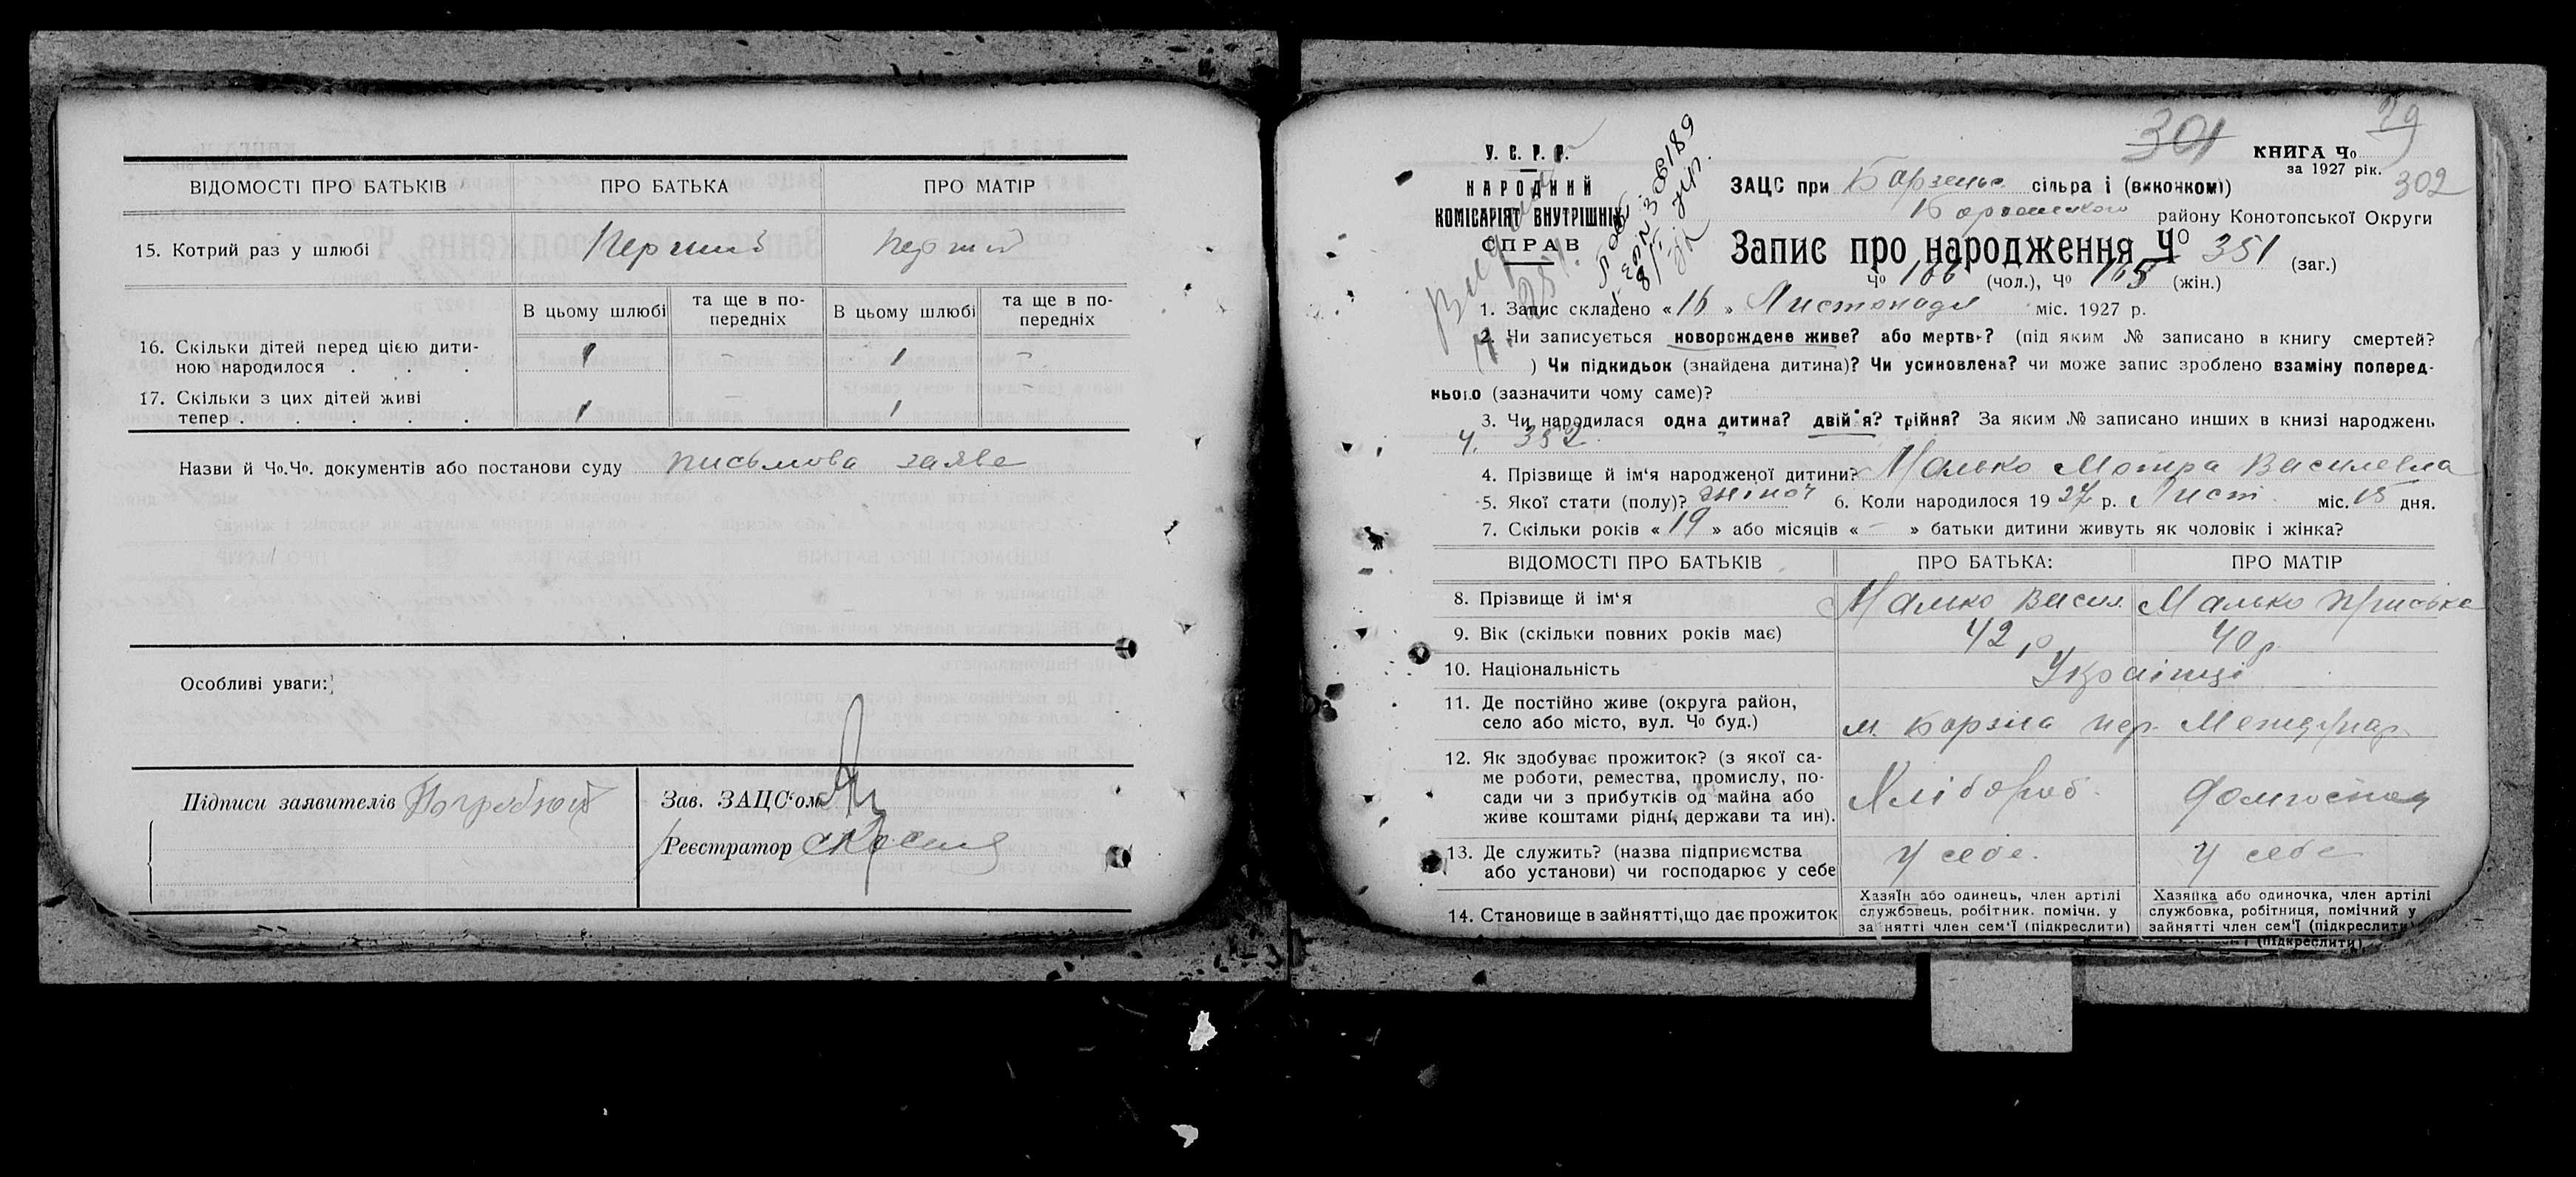 ВІДОМОСТІ ПРО БАТЬКІВ ПРО БАТЬКА ПРО МАТІР
15. Котрий раз у шлюбі Перший перший
В цьому шлюбі та ще в по-передніх В цьому шлюбі та ще в по-передніх
16. Скільки дітей перед цією дити-
ною народилося . . . 1 – 1 –
17. Скільки з цих дітей живі
тепер . . . . . 1 – 1 –
Назви й Чо.Чо. документів або постанови суду письмова заява
Особливі уваги:
Підписи заявителів
Зав. ЗАЦС'ом
Реєстратор
301
29
302
У. С. Р. Р.
НАРОДНИЙ
КОМІСАРІЯТ ВНУТРІШНІХ
СПРАВ
КНИГА Чо
за 1927 рік.
ЗАЦС при Борзенс. сільра і (виконкомі)
Борзенського району Конотопської Округи
Запис про народження Чо 351 (заг.)
Чо 186 (чол.), Чо 165 (жін.)
1. Запис складено «16» Листопада міс. 1927 р.
2. Чи записується новорождене живе? або мертве? (під яким № записано в книгу смертей?
) Чи підкидьок (знайдена дитина)? Чи усиновлена? чи може запис зроблено взаміну поперед-
нього (зазначити чому саме)?
3. Чи народилася одна дитина? двійя? трійня? За яким № записано инших в книзі народжень
Ч. 352
4. Прізвище й ім'я народженої дитини? Малько Мотра Василевна
5. Якої стати (полу)? жіноч 6. Коли народилося 1927 р. Лист. міс. 15 дня.
7. Скільки років «19» або місяців «–» батьки дитини живуть як чоловік і жінка?
ВІДОМОСТІ ПРО БАТЬКІВ ПРО БАТЬКА: ПРО МАТІР
8. Прізвище й ім'я Малько Васил Малько Приська
9. Вік (скільки повних років має) 42 р 40 р
10. Національність Українці
11. Де постійно живе (округа район,
село або місто, вул. Чо буд.) м. Борзна пер.
12. Як здобуває прожиток? (з якої са-
ме роботи, ремества, промислу, по-
сади чи з прибутків од майна або
живе коштами рідні, держави та ин). Хлібороб. Домгоспод
13. Де служить? (назва підприємства
або установи) чи господарює у себе у себе. у себе
14. Становище в зайнятті,що дає прожиток
Хазяїн або одинець, член артілі
службовець, робітник. помічн. у
занятті член сем'ї (підкреслити)
Хазяйка або одиночка, член артілі
службовка, робітниця, помічний у
зайнятті член сем'ї (підкреслити)
(підкреслити)